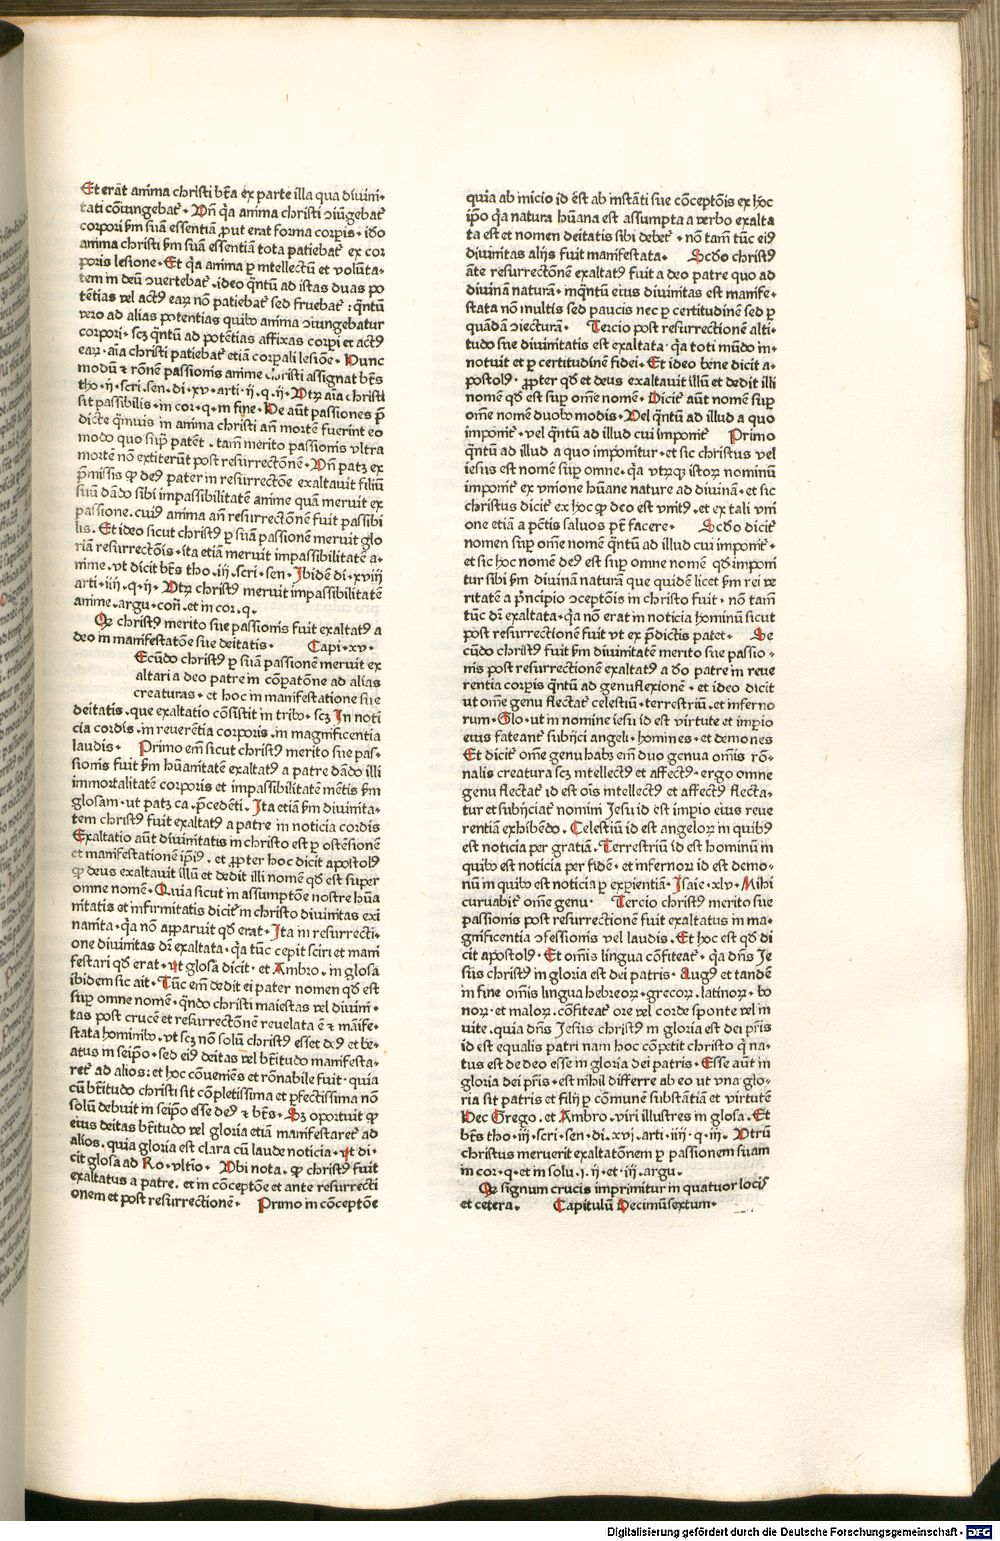 Et erāt anima christi bt̄a ex parte illa qua diuini-
tati cōiungebat᷑. Vn̄ q̄a anima christi ɔiūgebat᷑
corpori ẜm suā essentiā ꝓut erat forma corp̄is. iđo
anima christi ẜm suā essentiā tota patiebat᷑ ex cor
poris lesione. Et q̄a anima ꝑ intellectū et volūta-
tem in deū ɔuertebat᷑. ideo q̄ntū ad istas duas po
tētias vel actꝰ eaꝝ nō patiebat᷑ sed fruebat᷑: q̄ntū
vero ad alias potentias quibꝰ anima ɔiungebatur
corpori. scꝫ q̄ntū ad potētias affixas corpi et actꝰ
eaꝝ. aīa christi patiebat᷑ etiā corpali lesiōe. Hunc
modū ⁊ rōnē passionis anime christi assignat bt̄s
tho. ij. scri. sen. di. xv. arti. ij. q. ij. Vtꝝ aīa christi
sit passibilis. in cor. q. in fine. De aūt passiones p̄
dicte q̄muis in anima christi an̄ mortē fuerint eo
modo quo sup̄ patēt. tam̄ merito passionis vltra
mortē nō extiterūt post resurrectōnē. Vn̄ patꝫ ex
p̄missis ꝙ deꝰ pater in resurrectōe exaltauit filiū
suū dādo sibi impassibilitatē anime quā meruit ex
passione. cuiꝰ anima an̄ resurrectōnē fuit passibi
lis. Et ideo sicut christꝰ ꝑ suā passionē meruit glo
riā resurrectōis. ita etiā meruit impassibilitatē a-
nime. vt dicit bt̄s tho. iij. scri. sen. Ibidē di. xviij
arti. iiij. q. ij. Vtꝝ christꝰ meruit impassibilitatē
anime. argu. con̄. et in cor. q.
Qꝫ christꝰ merito sue passionis fuit exaltatꝰ a
deo in manifestatōe sue deitatis. Capi. xv.
Ecūdo christꝰ ꝑ suā passionē meruit ex
altari a deo patre in cōpatōne ad alias
creaturas. et hoc in manifestatione sue
deitatis. que exaltatio cōsistit in tribꝰ. scꝫ In noti
cia cordis. in reuerētia corporis. in magnificentia
laudis. Primo em̄ sicut christꝰ merito sue pas-
sionis fuit ẜm hūanitatē exaltatꝰ a patre dādo illi
immortalitatē corporis et impassibilitatē mētis ẜm
glosam. ut patꝫ ca. p̄cedēti. Ita etiā ẜm diuinita-
tem christꝰ fuit exaltatꝰ a patre in noticia cordis
Exaltatio aūt diuinitatis in christo est ꝑ ostēsionē
et manifestationē ip̄iꝰ. et ꝓpter hoc dicit apostolꝰ
ꝙ deus exaltauit illū et dedit illi nomē qđ est super
omne nomē. Quia sicut in assumptōe nostre hūa
nitatis et infirmitatis dicit᷑ in christo diuinitas exi
nanita. q̄a nō apparuit qđ erat. Ita in resurrecti-
one diuinitas dr̄ exaltata. q̄a tūc cepit sciri et mani
festari qđ erat. vt glosa dicit. et Ambro. in glosa
ibidem sic ait. Tūc em̄ dedit ei pater nomen qđ est
sup̄ omne nomē. q̄ndo christi maiestas vel diuini-
tas post crucē et resurrectōnē reuelata ē ⁊ māife-
stata hominibꝰ. vt scꝫ nō solū christꝰ esset deꝰ et be-
atus in seip̄o. sed eiꝰ deitas vel bt̄itudo manifesta-
ret᷑ ad alios: et hoc cōueniēs et rōnabile fuit. quia
cū bt̄itudo christi sit cōpletissima et ꝑfectissima nō
solū debuit in seip̄o esse deꝰ ⁊ bt̄s. Sꝫ oportuit ꝙ
eius deitas bt̄itudo vel gloria etiā manifestaret᷑ ad
alios. quia gloria est clara cū laude noticia. vt di-
cit glosa ad Ro. vltio. Vbi nota. ꝙ christꝰ fuit
exaltatus a patre. et in cōceptōe et ante resurrecti
onem et post resurrectione. Primo in cōceptōe
quia ab inicio id est ab instāti sue cōceptōis ex hoc
ip̄o q̄a natura hūana est assumpta a verbo exalta
ta est et nomen deitatis sibi debet᷑. nō tam̄ tūc eiꝰ
diuinitas alijs fuit manifestata. Scđo christꝰ
āte resurrectōnē exaltatꝰ fuit a deo patre quo ad
diuinā naturā. inq̄ntū eius diuinitas est manife-
stata nō multis sed paucis nec ꝑ certitudinē sed ꝑ
quādā ɔiecturā. Tercio post resurrectionē alti-
tudo sue diuinitatis est exaltata. q̄a toti mūdo in-
notuit et ꝑ certitudinē fidei. Et ideo bene dicit a-
postolꝰ. ꝓpter qđ et deus exaltauit illū et dedit illi
nomē qđ est sup̄ om̄e nomē. Dicit᷑ aūt nomē sup̄
om̄e nomē duobꝰ modis. Vel q̄ntū ad illud a quo
imponit᷑. vel q̄ntū ad illud cui imponit᷑ Primo
q̄ntū ad illud a quo imponitur. et sic christus vel
iesus est nomē sup̄ omne. q̄a vtꝝqꝫ istoꝝ nominū
imponit᷑ ex vnione hūane nature ad diuinā. et sic
christus dicit᷑ ex hoc ꝙ deo est vnitꝰ. et ex tali vni
one etiā a pctīs saluos pōt facere. Scđo dicit᷑
nomen sup̄ om̄e nomē q̄ntū ad illud cui imponit᷑.
et sic hoc nomē deꝰ est sup̄ omne nomē qđ imponi
tur sibi ẜm diuinā naturā que quidē licet ẜm rei ve
ritatē a p̄ncipio ɔceptōis in christo fuit. nō tam̄
tūc dr̄ exaltata. q̄a nō erat in noticia hominū sicut
post resurrectionē fuit vt ex p̄dictis patet. Se
cūdo christꝰ fuit ẜm diuinitatē merito sue passio-
nis post resurrectionē exaltatꝰ a đo patre in reue
rentia corp̄is q̄ntū ad genuflexionē. et ideo dicit
ut om̄e genu flectat᷑ celestiū. terrestriū. et inferno
rum. Glo. ut in nomine iesu id est virtute et imp̄io
eius fateant᷑ subijci angeli. homines. et demones
Et dicit᷑ om̄e genu habꝫ em̄ duo genua om̄is rō-
nalis creatura scꝫ intellectꝰ et affectꝰ. ergo omne
genu flectat᷑ id est oīs intellectꝰ et affectꝰ flecta-
tur et subijciat᷑ nomini Jesu id est imp̄io eius reue
rentiā exhibēdo. Celestiū id est angeloꝝ in quibꝰ
est noticia per gratiā. Terrestriū id est hominū in
quibꝰ est noticia per fidē. et infernoꝝ id est demo-
nū in quibꝰ est noticia ꝑ exꝑientiā. Isaie. xlv. Mihi
curuabit᷑ om̄e genu. Tercio christꝰ merito sue
passionis post resurrectionē fuit exaltatus in ma-
gnificentia ɔfessionis vel laudis. Et hoc est qđ di
cit apostolꝰ. Et om̄is lingua cōfiteat᷑. q̄a dn̄s Je
sus christꝰ in gloria est dei patris. Augꝰ et tandē
in fine om̄is lingua hebreoꝝ. grecoꝝ. latinoꝝ. bo
noꝝ. et maloꝝ. cōfiteat᷑ ore vel corde sponte vel in
uite. quia dn̄s Jesus christꝰ in gloria est dei pr̄is
id est equalis patri nam hoc cōpetit christo q̄ na-
tus est de deo esse in gloria dei patris. Esse aūt in
gloria dei pr̄is. est nihil differre ab eo ut vna glo-
ria sit patris et filij ꝑ cōmunē substātiā et virtutē
Hec Grego. et Ambro. viri illustres in glosa. Et
bt̄s tho. iij. scri. sen. di. xvj. arti. iiij. q. iij. Vtrū
christus meruerit exaltatōnem ꝑ passionem suam
in cor. q. et in solu. i. ij. et. iij. argu.
Qꝫ signum crucis imprimitur in quatuor locis
et cetera. Capitulū Decimūsextum.
Digitalisierung gefördert durch die Deutsche Forschungsgemeinschaft - DFG